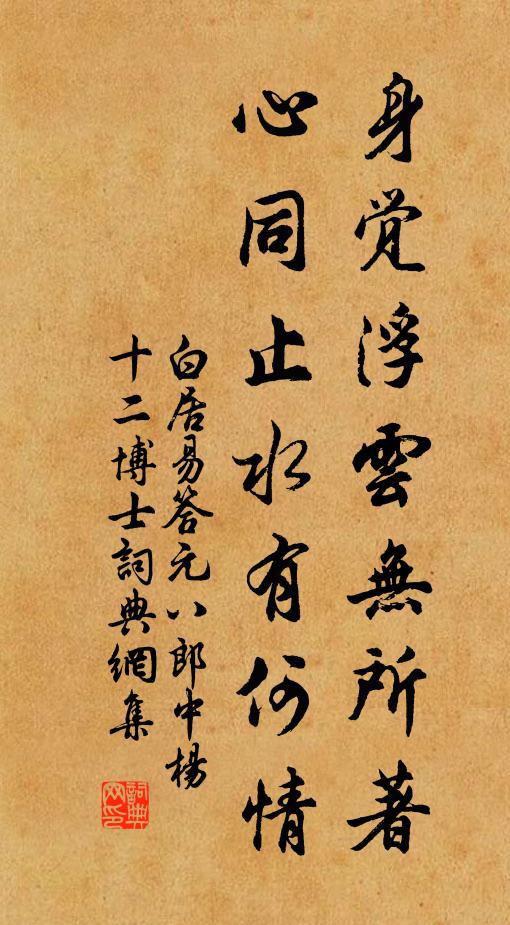 身覺浮雲無所著
心同止水有何情
白居易答元八郎中楊
十二博士詞典網集
詞典
网印